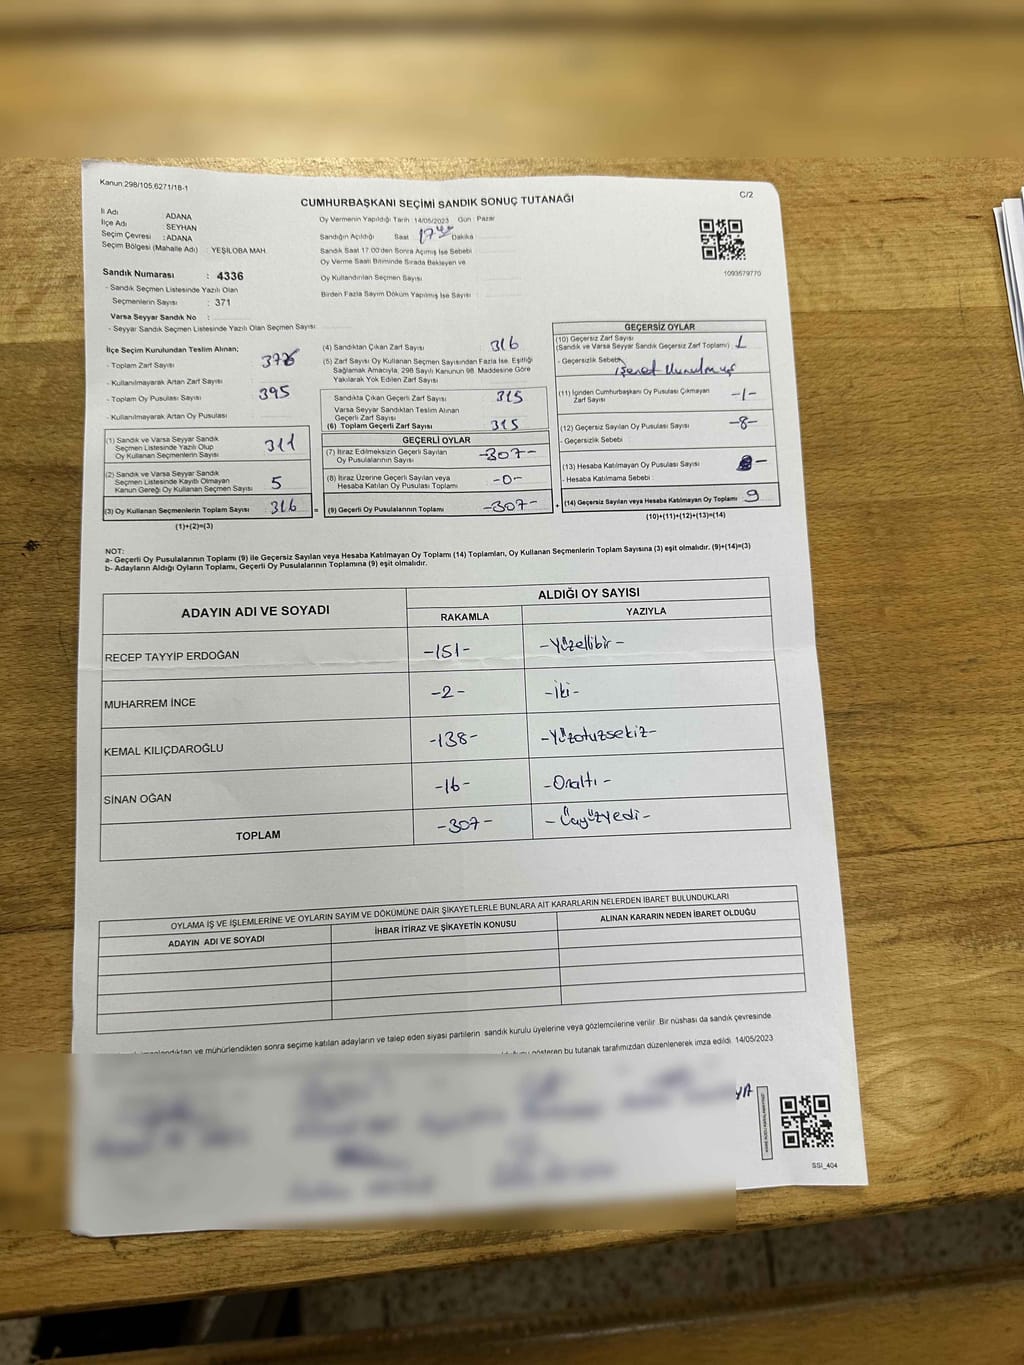 Kanun 298/105,6271/18-1
C/2
CUMHURBAŞKANI SEÇİMİ SANDIK SONUÇ TUTANAĞI
İl Adı : ADANA
İlçe Adı : SEYHAN
Seçim Çevresi : ADANA
Seçim Bölgesi (Mahalle Adı) : YEŞİLOBA MAH.
Sandık Numarası : 4336
- Sandık Seçmen Listesinde Yazılı Olan
Seçmenlerin Sayısı : 371
Varsa Seyyar Sandık No :
- Seyyar Sandık Seçmen Listesinde Yazılı Olan Seçmen Sayısı:
Oy Vermenin Yapıldığı Tarih : 14/05/2023 Gün : Pazar
Sandığın Açıldığı Saat 17 Dakika
Sandık Saat 17.00'den Sonra Açılmış İse Sebebi
Oy Verme Saati Bitiminde Sırada Bekleyen ve
Oy Kullandırılan Seçmen Sayısı
Birden Fazla Sayım Döküm Yapılmış İse Sayısı :
1093679770
İlçe Seçim Kurulundan Teslim Alınan;
- Toplam Zarf Sayısı
- Kullanılmayarak Artan Zarf Sayısı
- Toplam Oy Pusulası Sayısı 395
- Kullanılmayarak Artan Oy Pusulası
(1) Sandık ve Varsa Seyyar Sandık
Seçmen Listesinde Yazılı Olup
Oy Kullanan Seçmenlerin Sayısı 311
(2) Sandık ve Varsa Seyyar Sandık
Seçmen Listesinde Kayıtlı Olmayan
Kanun Gereği Oy Kullanan Seçmen Sayısı 5
(3) Oy Kullanan Seçmenlerin Toplam Sayısı 316 =
(1)+(2)=(3)
(4) Sandıktan Çıkan Zarf Sayısı 316
(5) Zarf Sayısı Oy Kullanan Seçmen Sayısından Fazla İse, Eşitliği
Sağlamak Amacıyla, 298 Sayılı Kanunun 98. Maddesine Göre
Yakılarak Yok Edilen Zarf Sayısı
Sandıkta Çıkan Geçerli Zarf Sayısı 315
Varsa Seyyar Sandıktan Teslim Alınan
Geçerli Zarf Sayısı
(6) Toplam Geçerli Zarf Sayısı 315
GEÇERLİ OYLAR
(7) İtiraz Edilmeksizin Geçerli Sayılan
Oy Pusulalarının Sayısı -307-
(8) İtiraz Üzerine Geçerli Sayılan veya
Hesaba Katılan Oy Pusulası Toplamı -0-
(9) Geçerli Oy Pusulalarının Toplamı -307- +
GEÇERSİZ OYLAR
(10) Geçersiz Zarf Sayısı
(Sandık ve Varsa Seyyar Sandık Geçersiz Zarf Toplamı) 1
- Geçersizlik Sebebi
İşaret Konulmuş
(11) İçinden Cumhurbaşkanı Oy Pusulası Çıkmayan
Zarf Sayısı -1-
(12) Geçersiz Sayılan Oy Pusulası Sayısı -8-
- Geçersizlik Sebebi
(13) Hesaba Katılmayan Oy Pusulası Sayısı
- Hesaba Katılmama Sebebi :
(14) Geçersiz Sayılan veya Hesaba Katılmayan Oy Toplamı 9
(10)+(11)+(12)+(13)=(14)
NOT:
a- Geçerli Oy Pusulalarının Toplamı (9) ile Geçersiz Sayılan veya Hesaba Katılmayan Oy Toplamı (14) Toplamları, Oy Kullanan Seçmenlerin Toplam Sayısına (3) eşit olmalıdır. (9)+(14)=(3)
b- Adayların Aldığı Oyların Toplamı, Geçerli Oy Pusulalarının Toplamına (9) eşit olmalıdır.
ADAYIN ADI VE SOYADI
ALDIĞI OY SAYISI
RAKAMLA YAZIYLA
RECEP TAYYİP ERDOĞAN -151- -Yüzellibir-
MUHARREM İNCE -2- -İki-
KEMAL KILIÇDAROĞLU -138- -Yüzotuzsekiz-
SİNAN OĞAN -16- -Onaltı-
TOPLAM -307- -Üçyüzyedi-
OYLAMA İŞ VE İŞLEMLERİNE VE OYLARIN SAYIM VE DÖKÜMÜNE DAİR ŞİKAYETLERLE BUNLARA AİT KARARLARIN NELERDEN İBARET BULUNDUKLARI
ADAYIN ADI VE SOYADI
İHBAR İTİRAZ VE ŞİKAYETİN KONUSU
ALINAN KARARIN NEDEN İBARET OLDUĞU
ve mühürlendikten sonra seçime katılan adayların ve talep eden siyasi partilerin sandık kurulu üyelerine veya gözlemcilerine verilir. Bir nüshası da sandık çevresinde
bu tutanak tarafımızdan düzenlenerek imza edildi. 14/05/2023
YA
SSI_404